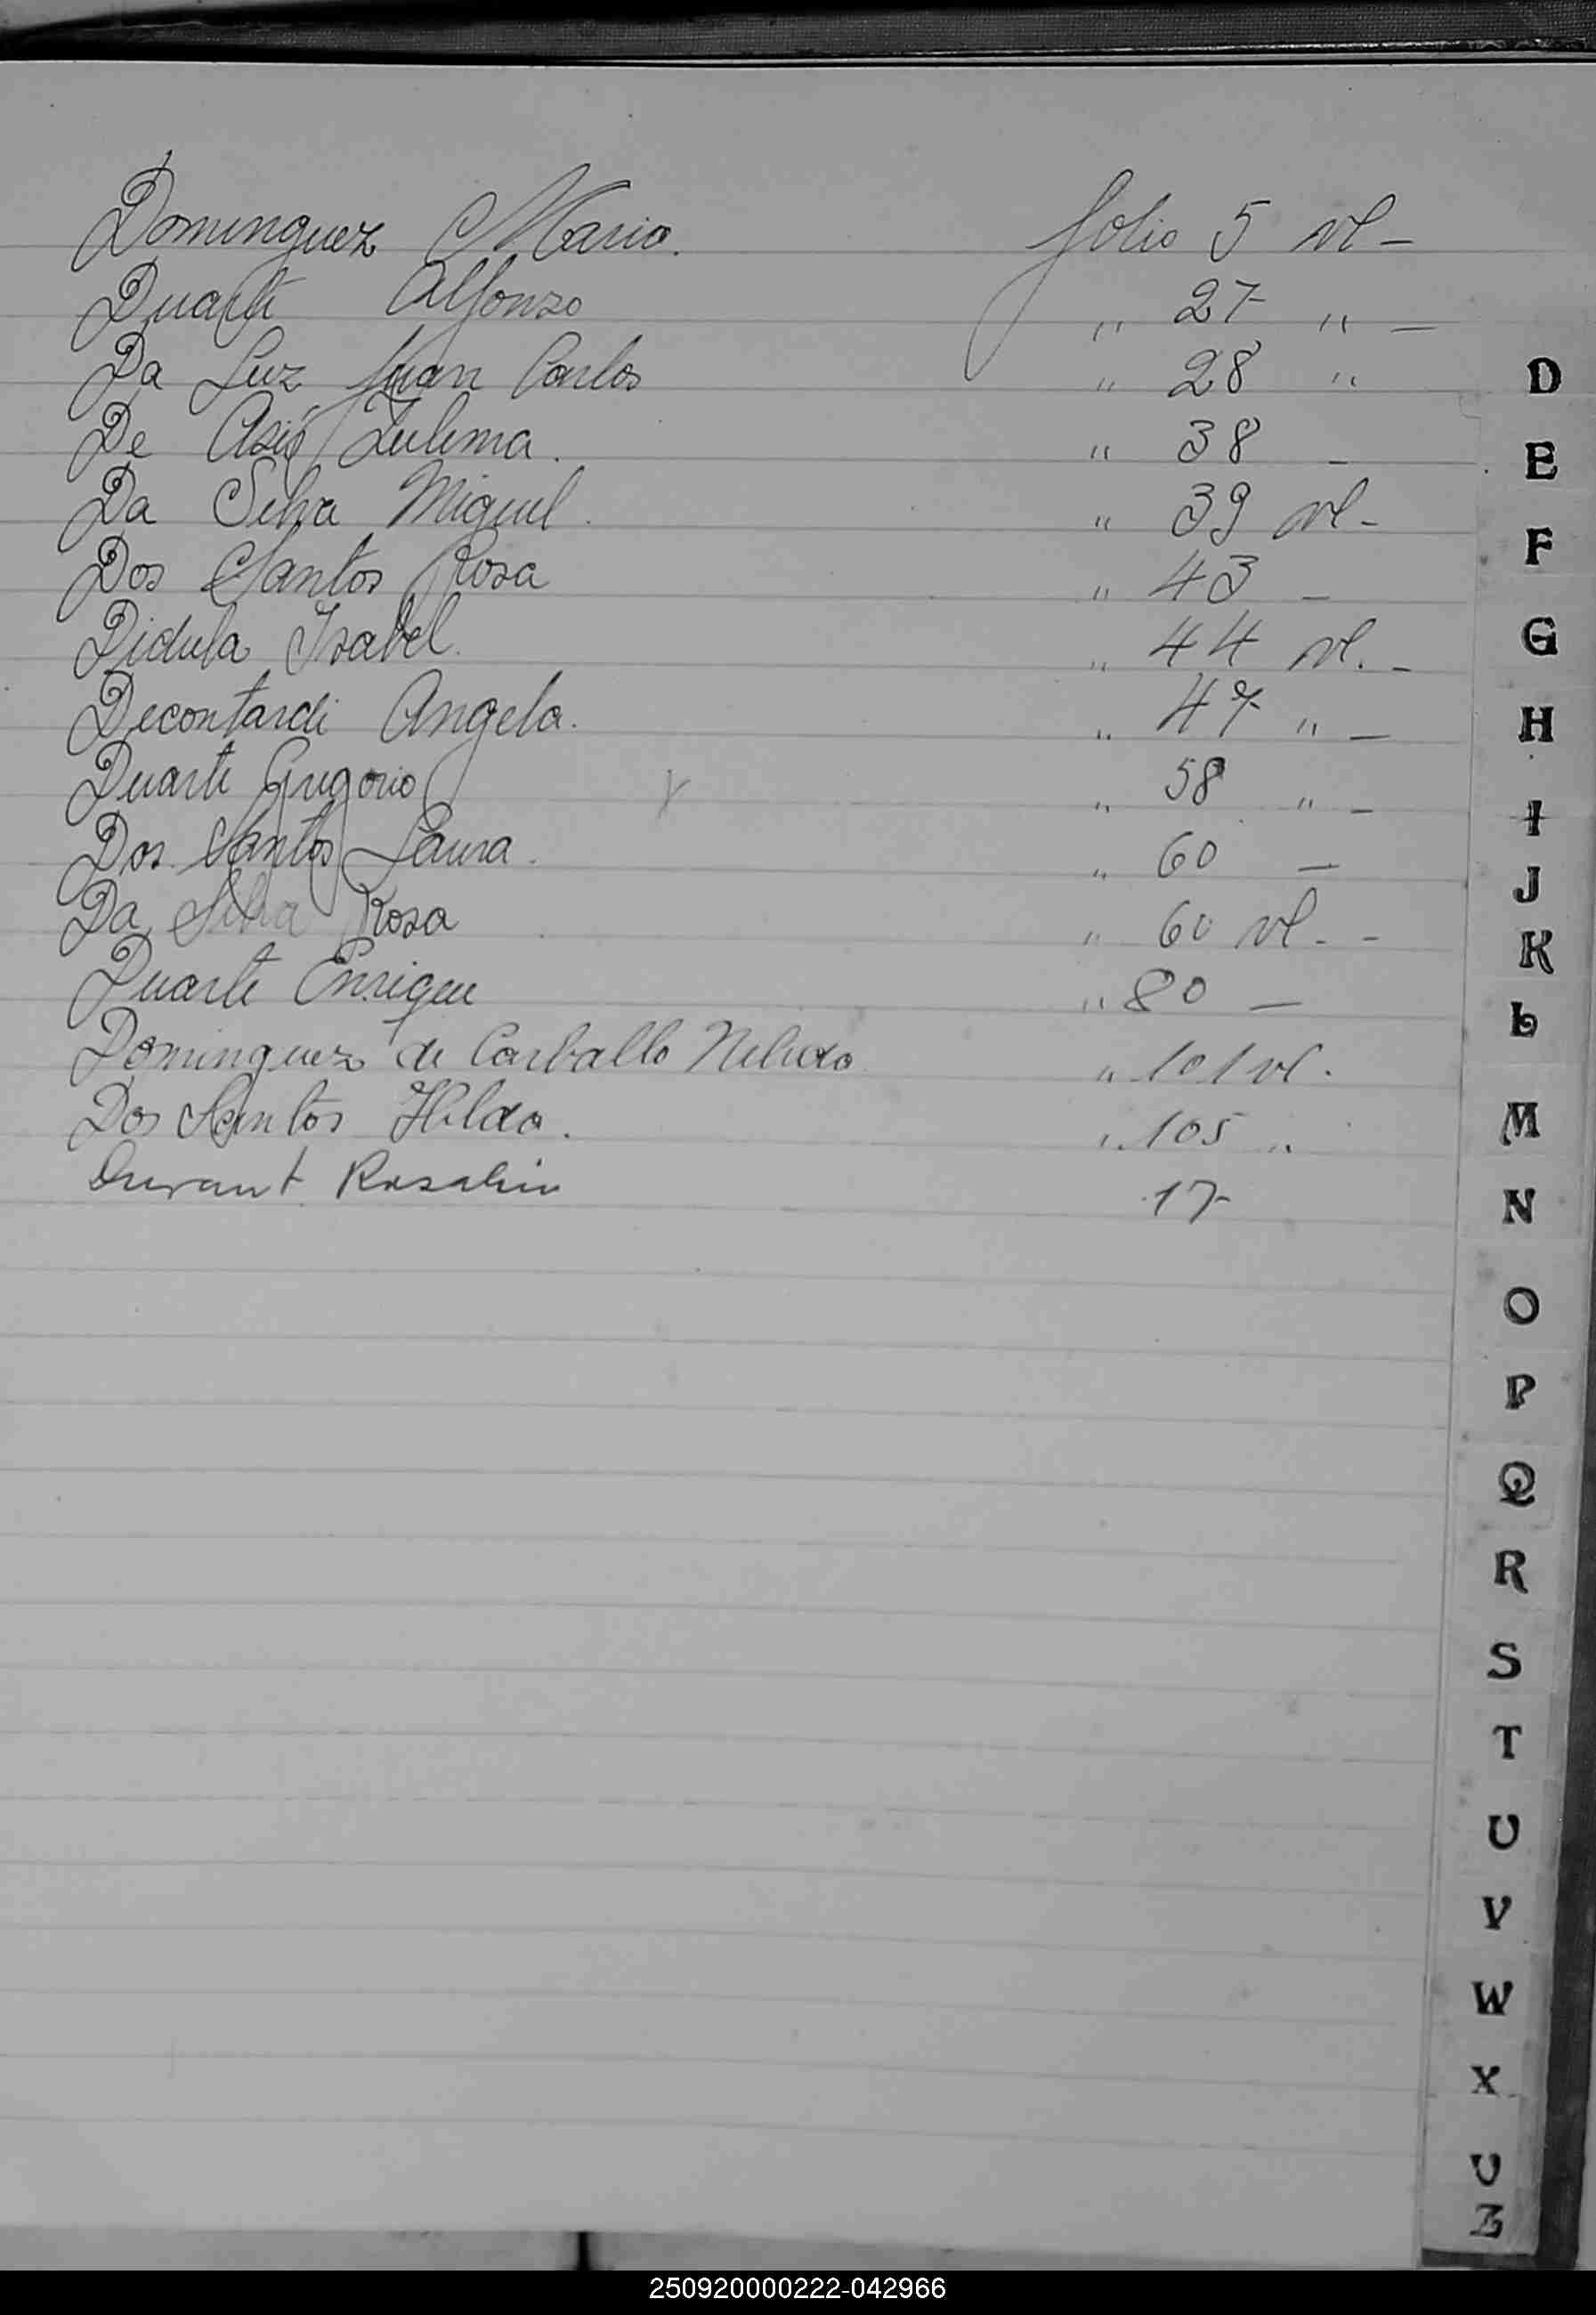 Dominguez Maria. folio 5 vl -
Duarte Alfonzo " 27 " -
Da Luz, Juan Carlos " 28 "
De Asis Zulema. " 38 -
Da Silva Miguel. " 39 vl -
Dos Santos Rosa " 43 -
Didula Isabel. " 44 vl. -
Decontardi Angela. " 47 " -
Duarte Gregorio " 58 " -
Dos Santos Laura. " 60 -
Da Silva Rosa " 60 vl - -
Duarte Enrique " 80 -
Dominguez de Carballo Nelida " 101 vl.
Dos Santos Hilda. " 105 "
Durant Rosalia 17
D
E
F
G
H
I
J
K
L
M
N
O
P
Q
R
S
T
U
V
W
X
Z
250920000222-042966